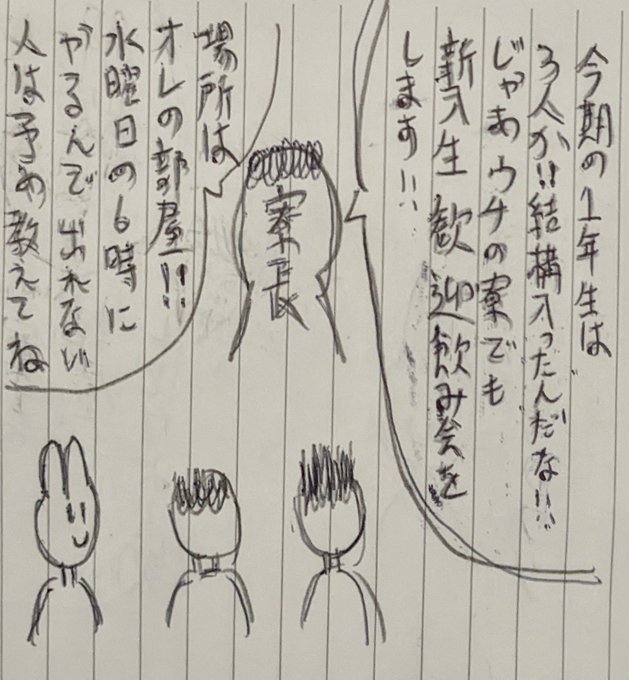 今期の1年生は
3人か!!結構入ったんだな!!
じゃあウチの寮でも
新入生歓迎飲み会を
します!!
寮長
場所は
オレの部屋!!
水曜日の6時に
やるんで出れない
人は予め教えてね